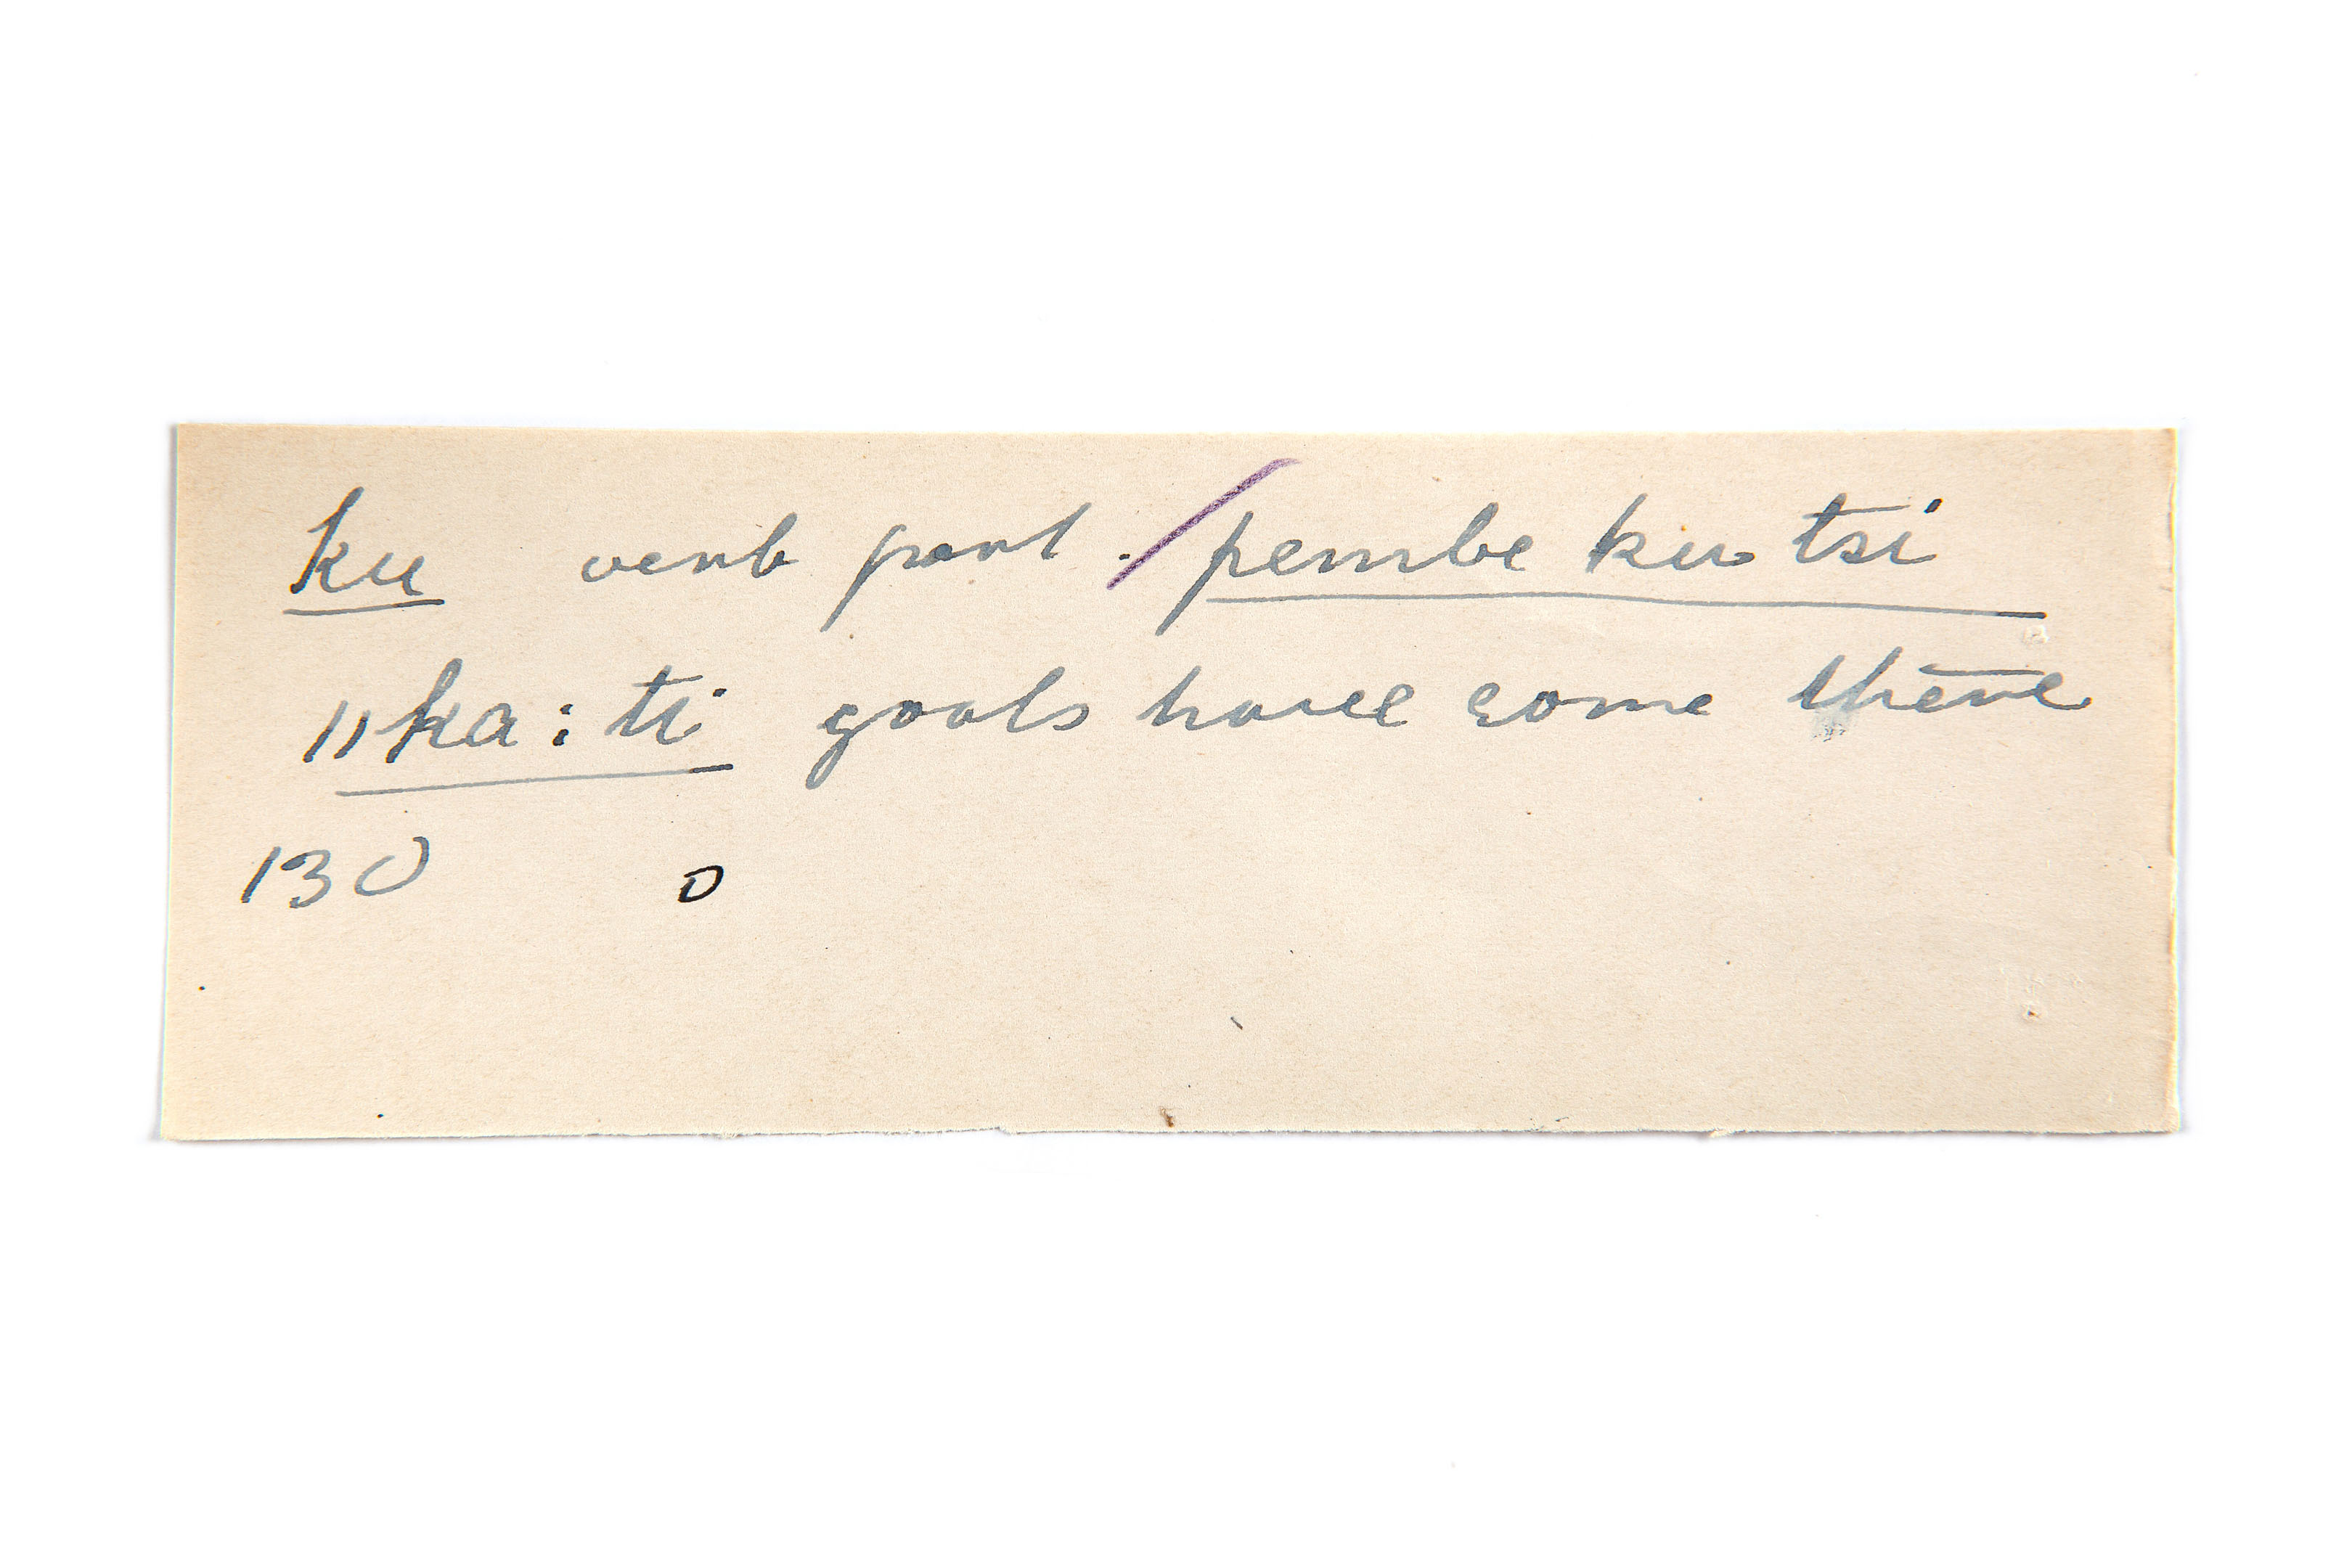 ku verb part. / pembe ku tsi
ǁka:ti goats have come there
130 o